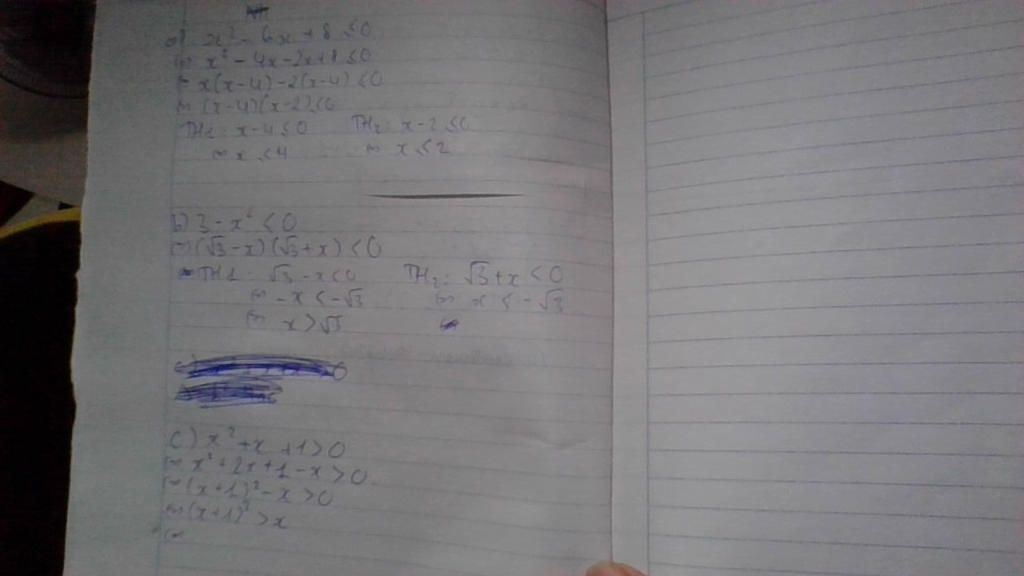 a) x² - 6x + 8 ≤ 0
⇔ x² - 4x - 2x + 8 ≤ 0
⇔ x(x-4) - 2(x-4) ≤ 0
⇔ (x-4)(x-2) ≤ 0
TH1: x-4 ≤ 0 TH2: x-2 ≤ 0
⇔ x ≤ 4 ⇔ x ≤ 2
b) 3 - x² < 0
⇔ (√3 - x)(√3 + x) < 0
TH1: √3 - x < 0 TH2: √3 + x < 0
⇔ -x < -√3 ⇔ x < -√3
⇔ x > √3
c) x² + x + 1 > 0
⇔ x² + 2x + 1 - x > 0
⇔ (x+1)² - x > 0
⇔ (x+1)² > x
⇔